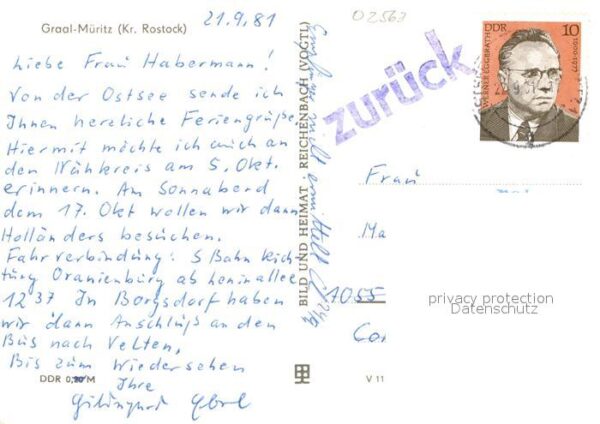 21.9.81
Graal-Müritz (Kr. Rostock)
Liebe Frau Habermann!
Von der Ostsee sende ich
Ihnen herzliche Feriengrüße.
Hiermit möchte ich mich an
den Nähkreis am 5. Okt.
erinnern. Am Sonnabend
dem 17. Okt wollen wir dann
Holländers besuchen.
Fahrverbindung: S Bahn Rich
tung Oranienburg ab
1237 In Borgsdorf haben
wir dann Anschluß an den
Bus nach Velten.
Bis zum Wiedersehen
Ihre
DDR 0,20 M
BILD UND HEIMAT REICHENBACH (VOGTL)
V 11
02563
zurück
DDR 10
WERNER EGGERATH 1900-1977
Frau
Ma
1055
Co
privacy protection
Datenschutz